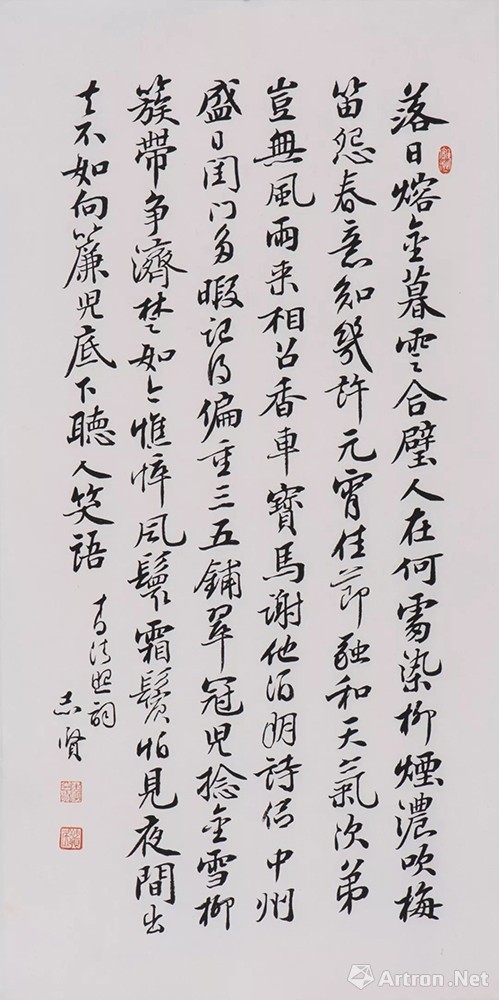 落日熔金暮雲合璧人在何處染柳煙濃吹梅
笛怨春意知幾許元宵佳節融和天氣次第
豈無風雨來相召香車寶馬謝他酒朋詩侶中州
盛日閨門多暇記得偏重三五鋪翠冠兒捻金雪柳
簇帶争濟楚如今憔悴風鬟霜鬢怕見夜間出
去不如向簾兒底下聽人笑語
李清照詞
志賢
Artron.Net